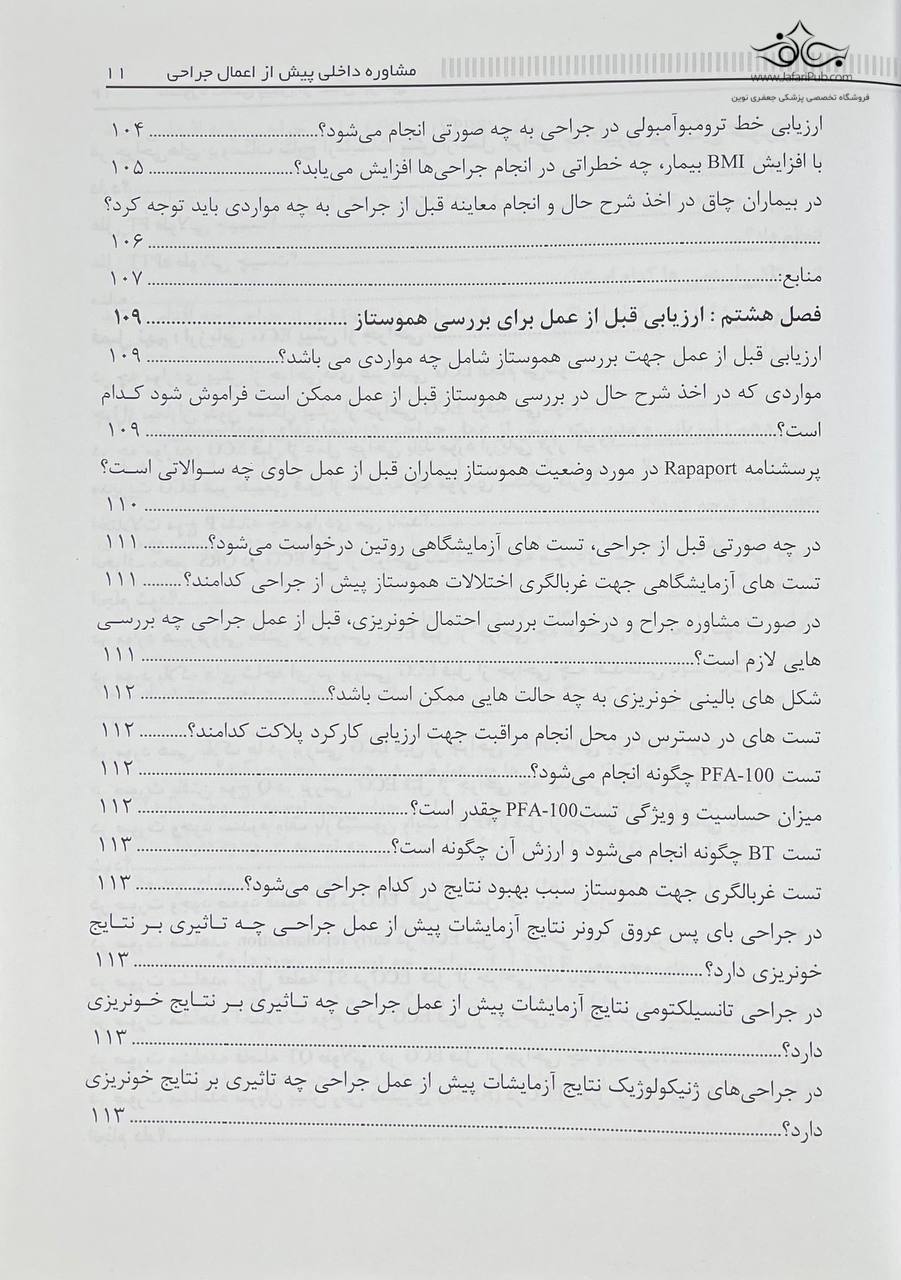 بهاف
www.JafariPub.com
فروشگاه تخصصی پزشکی جعفری نوین
مشاوره داخلی پیش از اعمال جراحی ۱۱
ارزیابی خط ترومبوآمبولی در جراحی به چه صورتی انجام می‌شود؟ ........ ۱۰۴
با افزایش BMI بیمار، چه خطراتی در انجام جراحی‌ها افزایش می‌یابد؟ ........ ۱۰۵
در بیماران چاق در اخذ شرح حال و انجام معاینه قبل از جراحی به چه مواردی باید توجه کرد؟
........ ۱۰۶
منابع: ........ ۱۰۷
فصل هشتم : ارزیابی قبل از عمل برای بررسی هموستاز ........ ۱۰۹
ارزیابی قبل از عمل جهت بررسی هموستاز شامل چه مواردی می باشد؟ ........ ۱۰۹
مواردی که در اخذ شرح حال در بررسی هموستاز قبل از عمل ممکن است فراموش شود کدام
است؟ ........ ۱۰۹
پرسشنامه Rapaport در مورد وضعیت هموستاز بیماران قبل از عمل حاوی چه سوالاتی است؟
........ ۱۱۰
در چه صورتی قبل از جراحی، تست های آزمایشگاهی روتین درخواست می‌شود؟ ........ ۱۱۱
تست های آزمایشگاهی جهت غربالگری اختلالات هموستاز پیش از جراحی کدامند؟ ........ ۱۱۱
در صورت مشاوره جراح و درخواست بررسی احتمال خونریزی، قبل از عمل جراحی چه بررسی
هایی لازم است؟ ........ ۱۱۱
شکل های بالینی خونریزی به چه حالت هایی ممکن است باشد؟ ........ ۱۱۲
تست های در دسترس در محل انجام مراقبت جهت ارزیابی کارکرد پلاکت کدامند؟ ........ ۱۱۲
تست PFA-100 چگونه انجام می‌شود؟ ........ ۱۱۲
میزان حساسیت و ویژگی تست PFA-100 چقدر است؟ ........ ۱۱۲
تست BT چگونه انجام می‌شود و ارزش آن چگونه است؟ ........ ۱۱۳
تست غربالگری جهت هموستاز سبب بهبود نتایج در کدام جراحی می‌شود؟ ........ ۱۱۳
در جراحی بای پس عروق کرونر نتایج آزمایشات پیش از عمل جراحی چه تاثیری بر نتایج
خونریزی دارد؟ ........ ۱۱۳
در جراحی تانسیلکتومی نتایج آزمایشات پیش از عمل جراحی چه تاثیری بر نتایج خونریزی
دارد؟ ........ ۱۱۳
در جراحی‌های ژنیکولوژیک نتایج آزمایشات پیش از عمل جراحی چه تاثیری بر نتایج خونریزی
دارد؟ ........ ۱۱۳